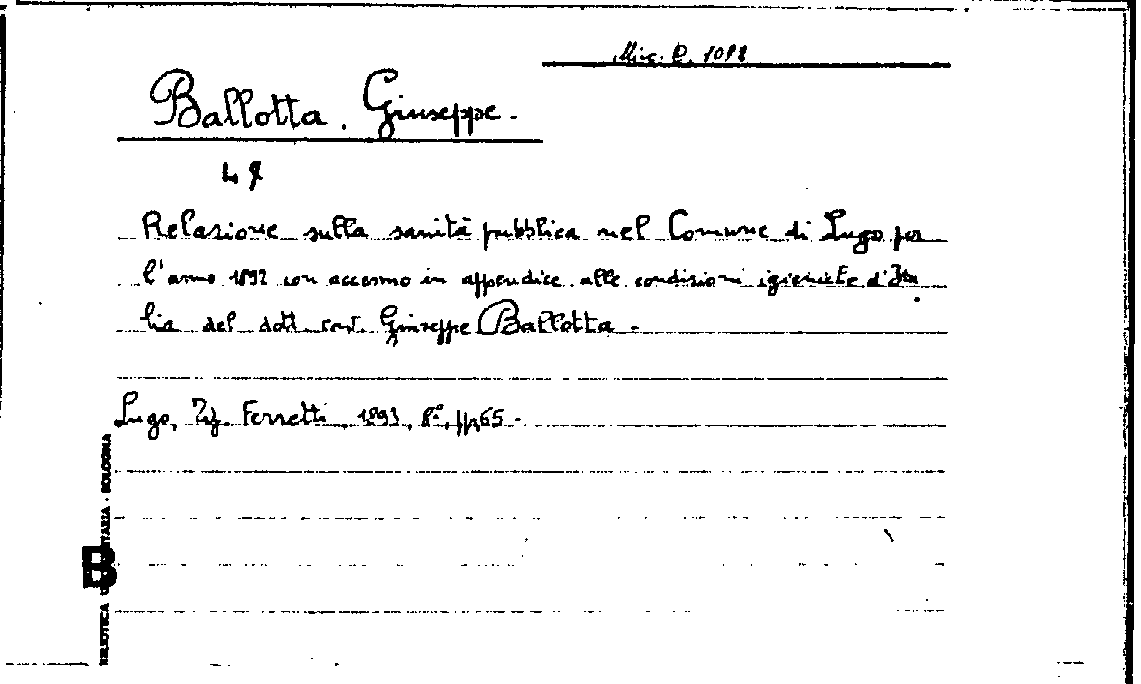 Misc. B. 1098
Ballotta. Giuseppe.
Relazione sulla sanità pubblica nel Comune di Lugo per
l'anno 1892 con accenno in appendice alle condizioni igieniche d'Ita
lia del dott. cav. Giuseppe Ballotta.
Lugo, Tip. Ferretti, 1893, 8º, pp. 65.
BIBLIOTECA UNIVERSITARIA - BOLOGNA